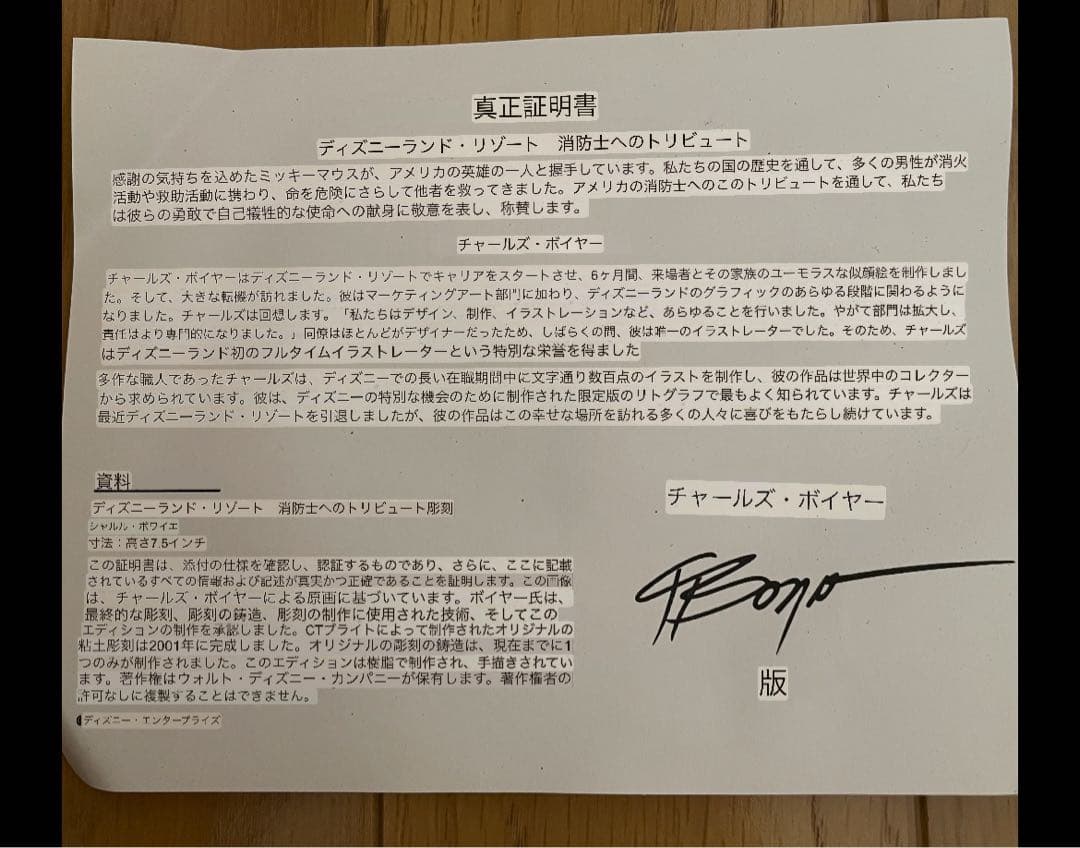 真正証明書
ディズニーランド・リゾート　消防士へのトリビュート
感謝の気持ちを込めたミッキーマウスが、アメリカの英雄の一人と握手しています。私たちの国の歴史を通して、多くの男性が消火
活動や救助活動に携わり、命を危険にさらして他者を救ってきました。アメリカの消防士へのこのトリビュートを通して、私たち
は彼らの勇敢で自己犠牲的な使命への献身に敬意を表し、称賛します。
チャールズ・ボイヤー
チャールズ・ボイヤーはディズニーランド・リゾートでキャリアをスタートさせ、6ヶ月間、来場者とその家族のユーモラスな似顔絵を制作しまし
た。そして、大きな転機が訪れました。彼はマーケティングアート部門に加わり、ディズニーランドのグラフィックのあらゆる段階に関わるように
なりました。チャールズは回想します。「私たちはデザイン、制作、イラストレーションなど、あらゆることを行いました。やがて部門は拡大し、
責任はより専門的になりました。」同僚はほとんどがデザイナーだったため、しばらくの間、彼は唯一のイラストレーターでした。そのため、チャールズ
はディズニーランド初のフルタイムイラストレーターという特別な栄誉を得ました
多作な職人であったチャールズは、ディズニーでの長い在職期間中に文字通り数百点のイラストを制作し、彼の作品は世界中のコレクター
から求められています。彼は、ディズニーの特別な機会のために制作された限定版のリトグラフで最もよく知られています。チャールズは
最近ディズニーランド・リゾートを引退しましたが、彼の作品はこの幸せな場所を訪れる多くの人々に喜びをもたらし続けています。
資料
ディズニーランド・リゾート　消防士へのトリビュート彫刻
シャルル・ボワイエ
寸法：高さ7.5インチ
この証明書は、添付の仕様を確認し、認証するものであり、さらに、ここに記載
されているすべての情報および記述が真実かつ正確であることを証明します。この画像
は、チャールズ・ボイヤーによる原画に基づいています。ボイヤー氏は、
最終的な彫刻、彫刻の鋳造、彫刻の制作に使用された技術、そしてこの
エディションの制作を承認しました。CTブライトによって制作されたオリジナルの
粘土彫刻は2001年に完成しました。オリジナルの彫刻の鋳造は、現在までに1
つのみが制作されました。このエディションは樹脂で制作され、手描きされてい
ます。著作権はウォルト・ディズニー・カンパニーが保有します。著作権者の
許可なしに複製することはできません。
ディズニー・エンタープライズ
チャールズ・ボイヤー
版